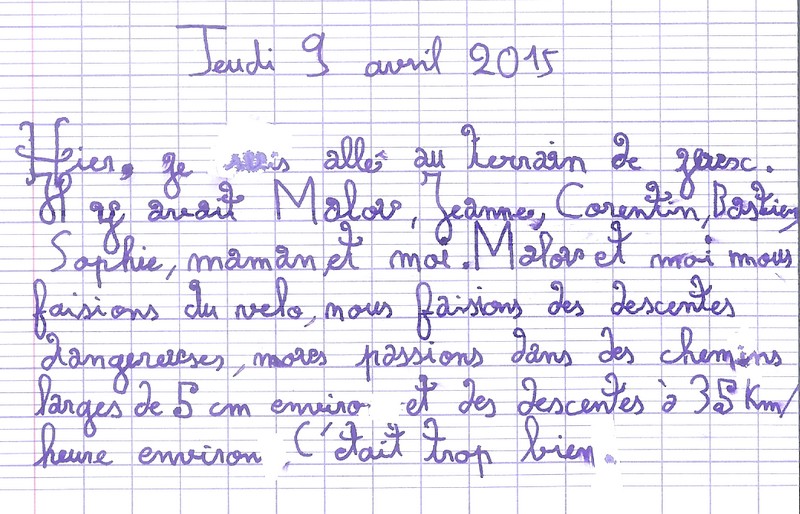 Jeudi 9 avril 2015
Hier, je suis allé au terrain de
Il y avait Malov, Jeanne, Corentin, Bastien,
Sophie, maman et moi. Malov et moi nous
faisions du velo, nous faisions des descentes
dangereuses, nous passions dans des chemins
larges de 5 cm enviro et des descentes à 35 Km/
heure environ. C'était trop bien.